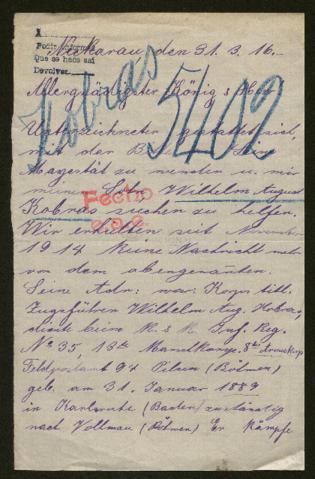 A
Pedir informe
Que se haos saí
Devolver
Neckarau, den 31.3.16.
Kobras 5402
Allergnädigster König & Herr
Unterzeichneter gestattet sich,
mit der B
Magestät zu wenden u. mir
meinen Sohn Wilhelm August
Kobras suchen zu helfen.
Fecho
Wir erhielten seit November
1914 keine Nachricht mehr
von dem obengenannten.
Seine Adr: war: Korps titl.
Zugsführer Wilhelm Aug. Kobras,
dient beim K. & K. Inf. Reg.
No 35, 13te Marschkomp. 8te Armeekorp
Feldpostamt 94 Pilsen (Böhmen)
geb. am 31. Januar 1889
in Karlsruhe (Baden) zuständig
nach Vollmau (Böhmen) Er kämpfe